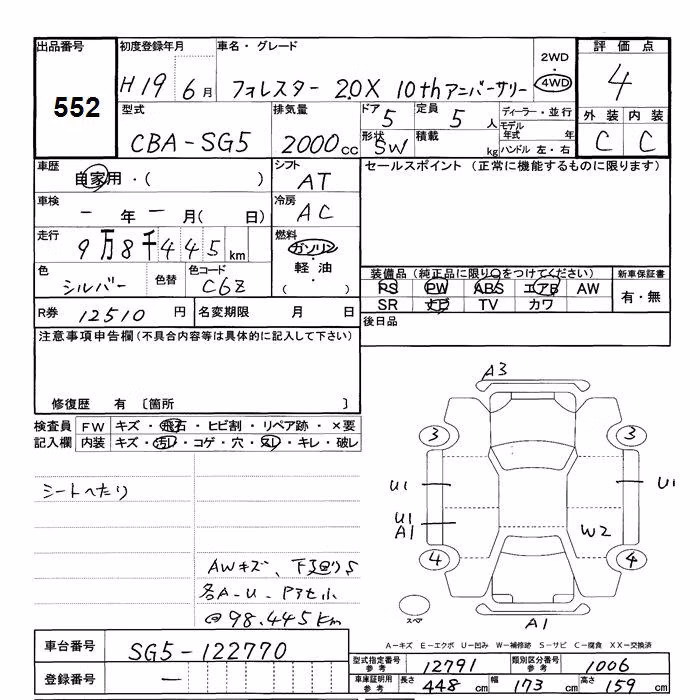 出品番号 初度登録年月 車名・グレード 2WD 評価点
552 H19 6月 フォレスター 2.0X 10thアニバーサリー 4WD 4
型式 排気量 ドア 定員 ディーラー・並行 外装 内装
CBA-SG5 2000cc 5 5人 モデル年式 年 C C
形状 SW 積載 kg ハンドル 左・右
車歴 自家用・( ) シフト AT セールスポイント (正常に機能するものに限ります)
車検 一年一月( 日) 冷房 AC
走行 9万8千445km 燃料 ガソリン・軽油・( )
色 シルバー 色替 色コード C6Z
装備品 (純正品に限り○をつけてください) 新車保証書
PS PW ABS エアB AW 有・無
SR ナビ TV カワ
R券 12510円 名変期限 月 日 後日品
注意事項申告欄 (不具合内容等は具体的に記入して下さい)
修復歴 有 〔箇所 〕
検査員 FW キズ・飛石・ヒビ割・リペア跡・×要
記入欄 内装 キズ・汚レ・コゲ・穴・スレ・キレ・破レ
シートへたり
AWキズ、下廻りS
各A-U-Pアせ小
@98.445km
A3
3 3
U1 U1
U1
A1 W2
4 4
スペア
A1
A-キズ E-エクボ U-凹み W-補修跡 S-サビ C-腐食 XX-交換済
車台番号 SG5-122770
登録番号 一
型式指定番号 参考 12791 類別区分番号 参考 1006
車庫証明用 参考 長さ 448cm 幅 173cm 高さ 159cm